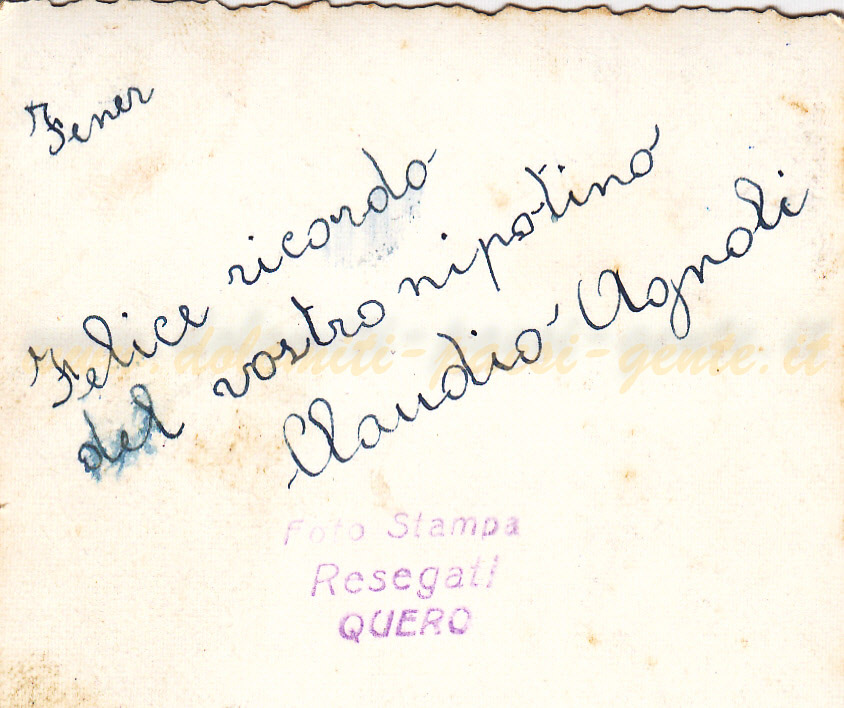 Fener
Felice ricordo
del vostro nipotino
Claudio Agnoli
www.dolomiti-paesi-gente.it
Foto Stampa
Resegati
QUERO